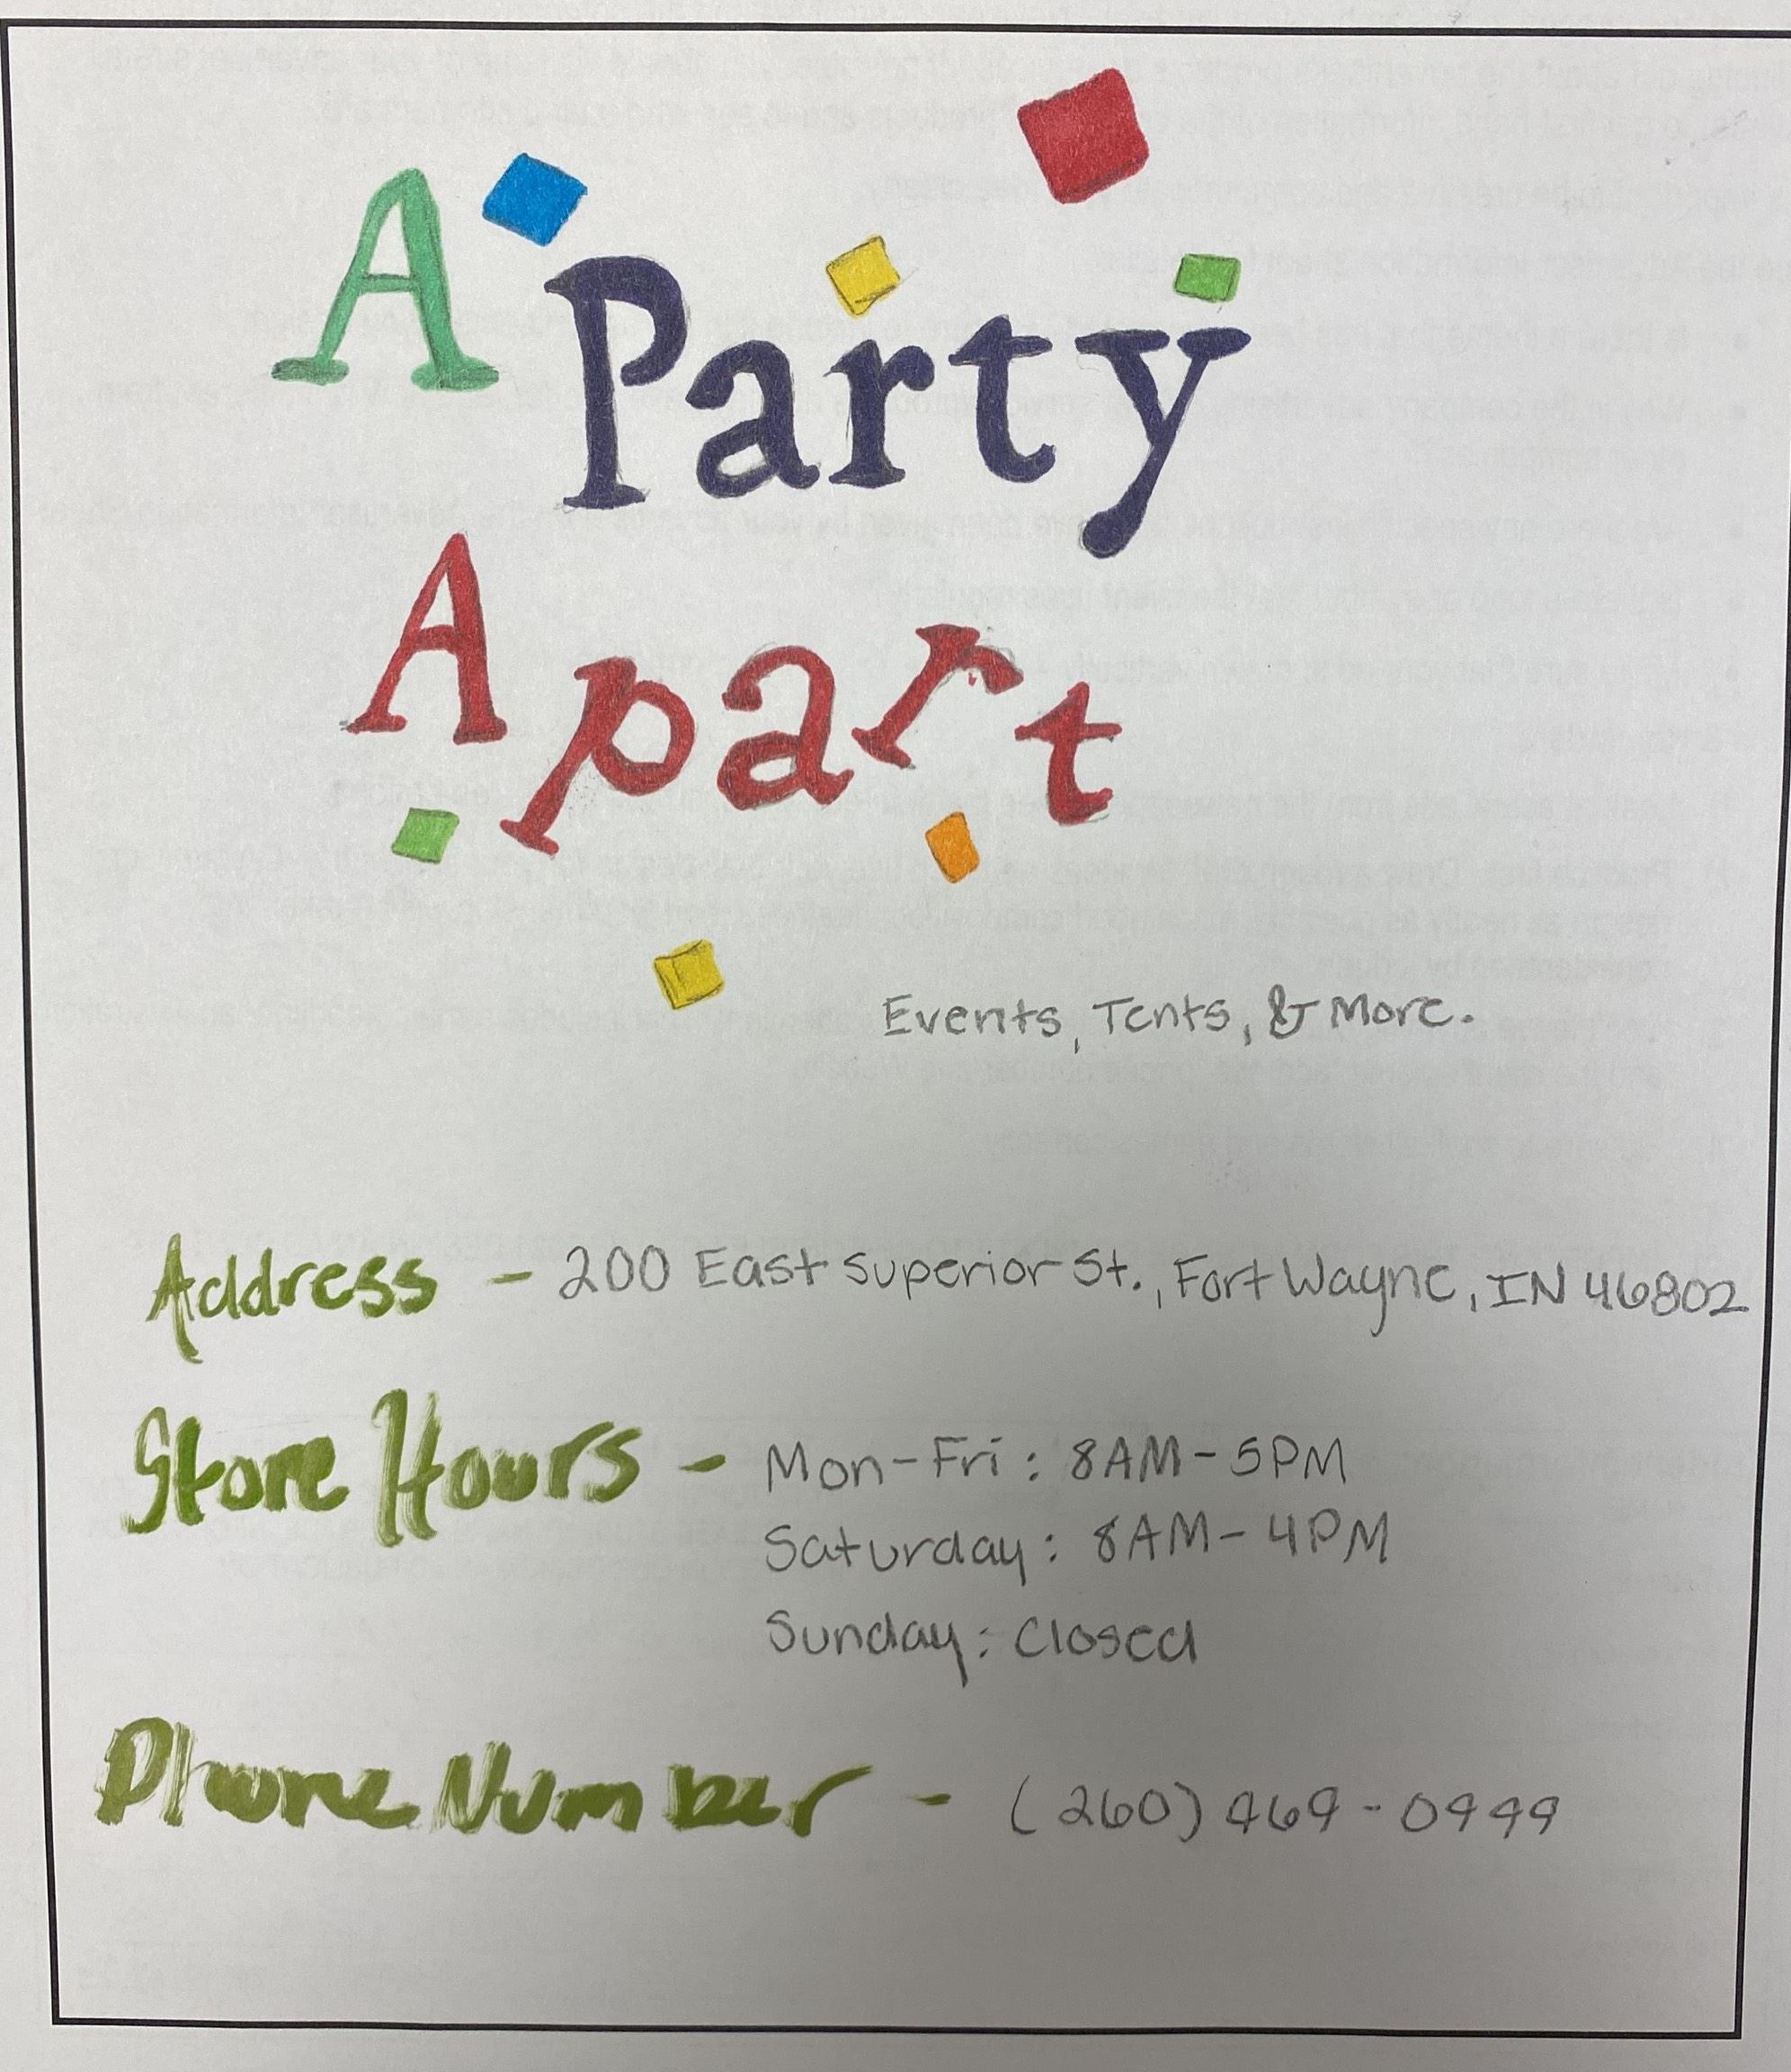 A
Party
Apart
Events, Tents, & More.
Address - 200 East Superior St., Fort Wayne, IN 46802
Store Hours - Mon-Fri: 8AM-5PM
Saturday: 8AM-4PM
Sunday: Closed
Phone Number - (260) 469-0999